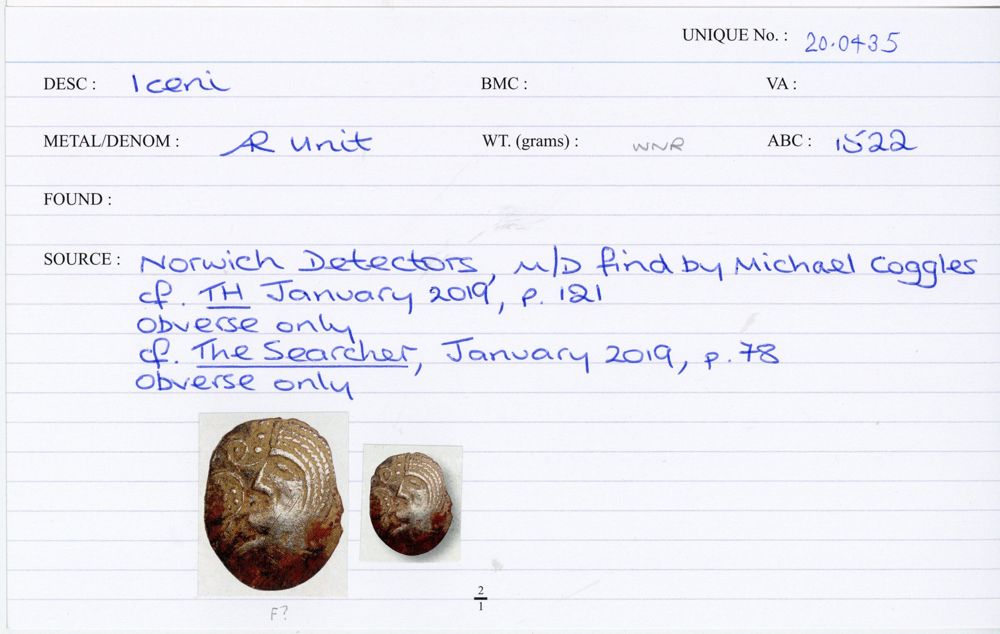 UNIQUE No. : 20.0435
DESC : Iceni BMC : VA :
METAL/DENOM : AR Unit WT. (grams) : WNR ABC : 1522
FOUND :
SOURCE : Norwich Detectors, M/D find by Michael Coggles
cf. TH January 2019, p. 121
obverse only
cf. The Searcher, January 2019, p. 78
obverse only
F?
2
1